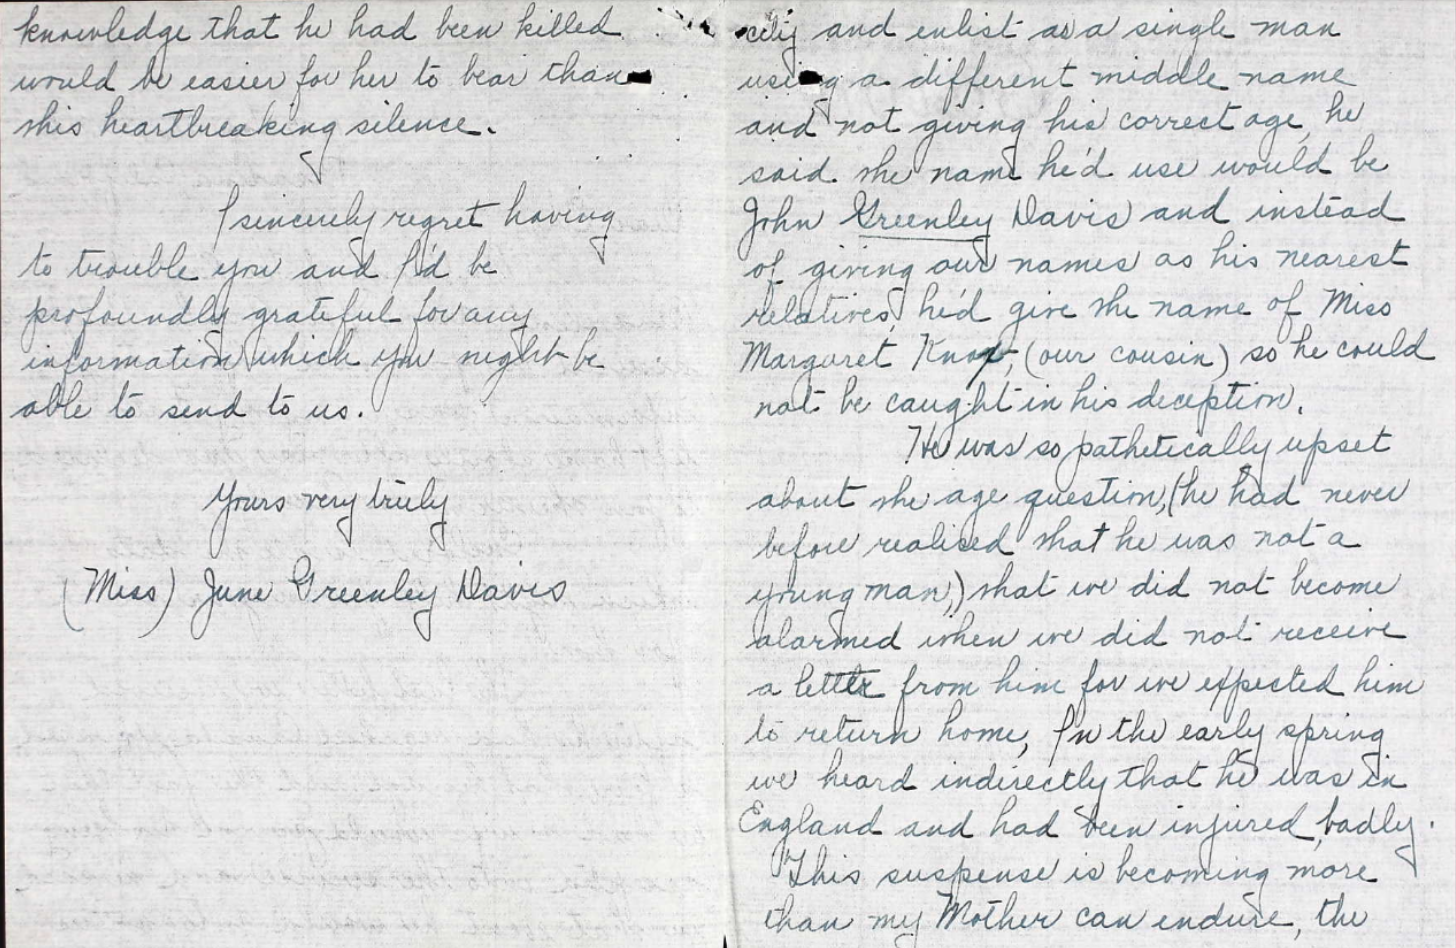 city and enlist as a single man
using a different middle name
and not giving his correct age, he
said the name he'd use would be
John Greenley Davis and instead
of giving our names as his nearest
relatives, he'd give the name of Miss
Margaret Knox, (our cousin) so he could
not be caught in his deception.
He was so pathetically upset
about the age question, (he had never
before realised that he was not a
young man,) that we did not become
alarmed when we did not receive
a letter from him for we expected him
to return home, In the early spring
we heard indirectly that he was in
England and had been injured badly.
This suspense is becoming more
than my Mother can endure, the
knowledge that he had been killed
would be easier for her to bear than
this heartbreaking silence.
I sincerely regret having
to trouble you and I'd be
profoundly grateful for any
information which you might be
able to send to us.
Yours very truly
(Miss) June Greenley Davis